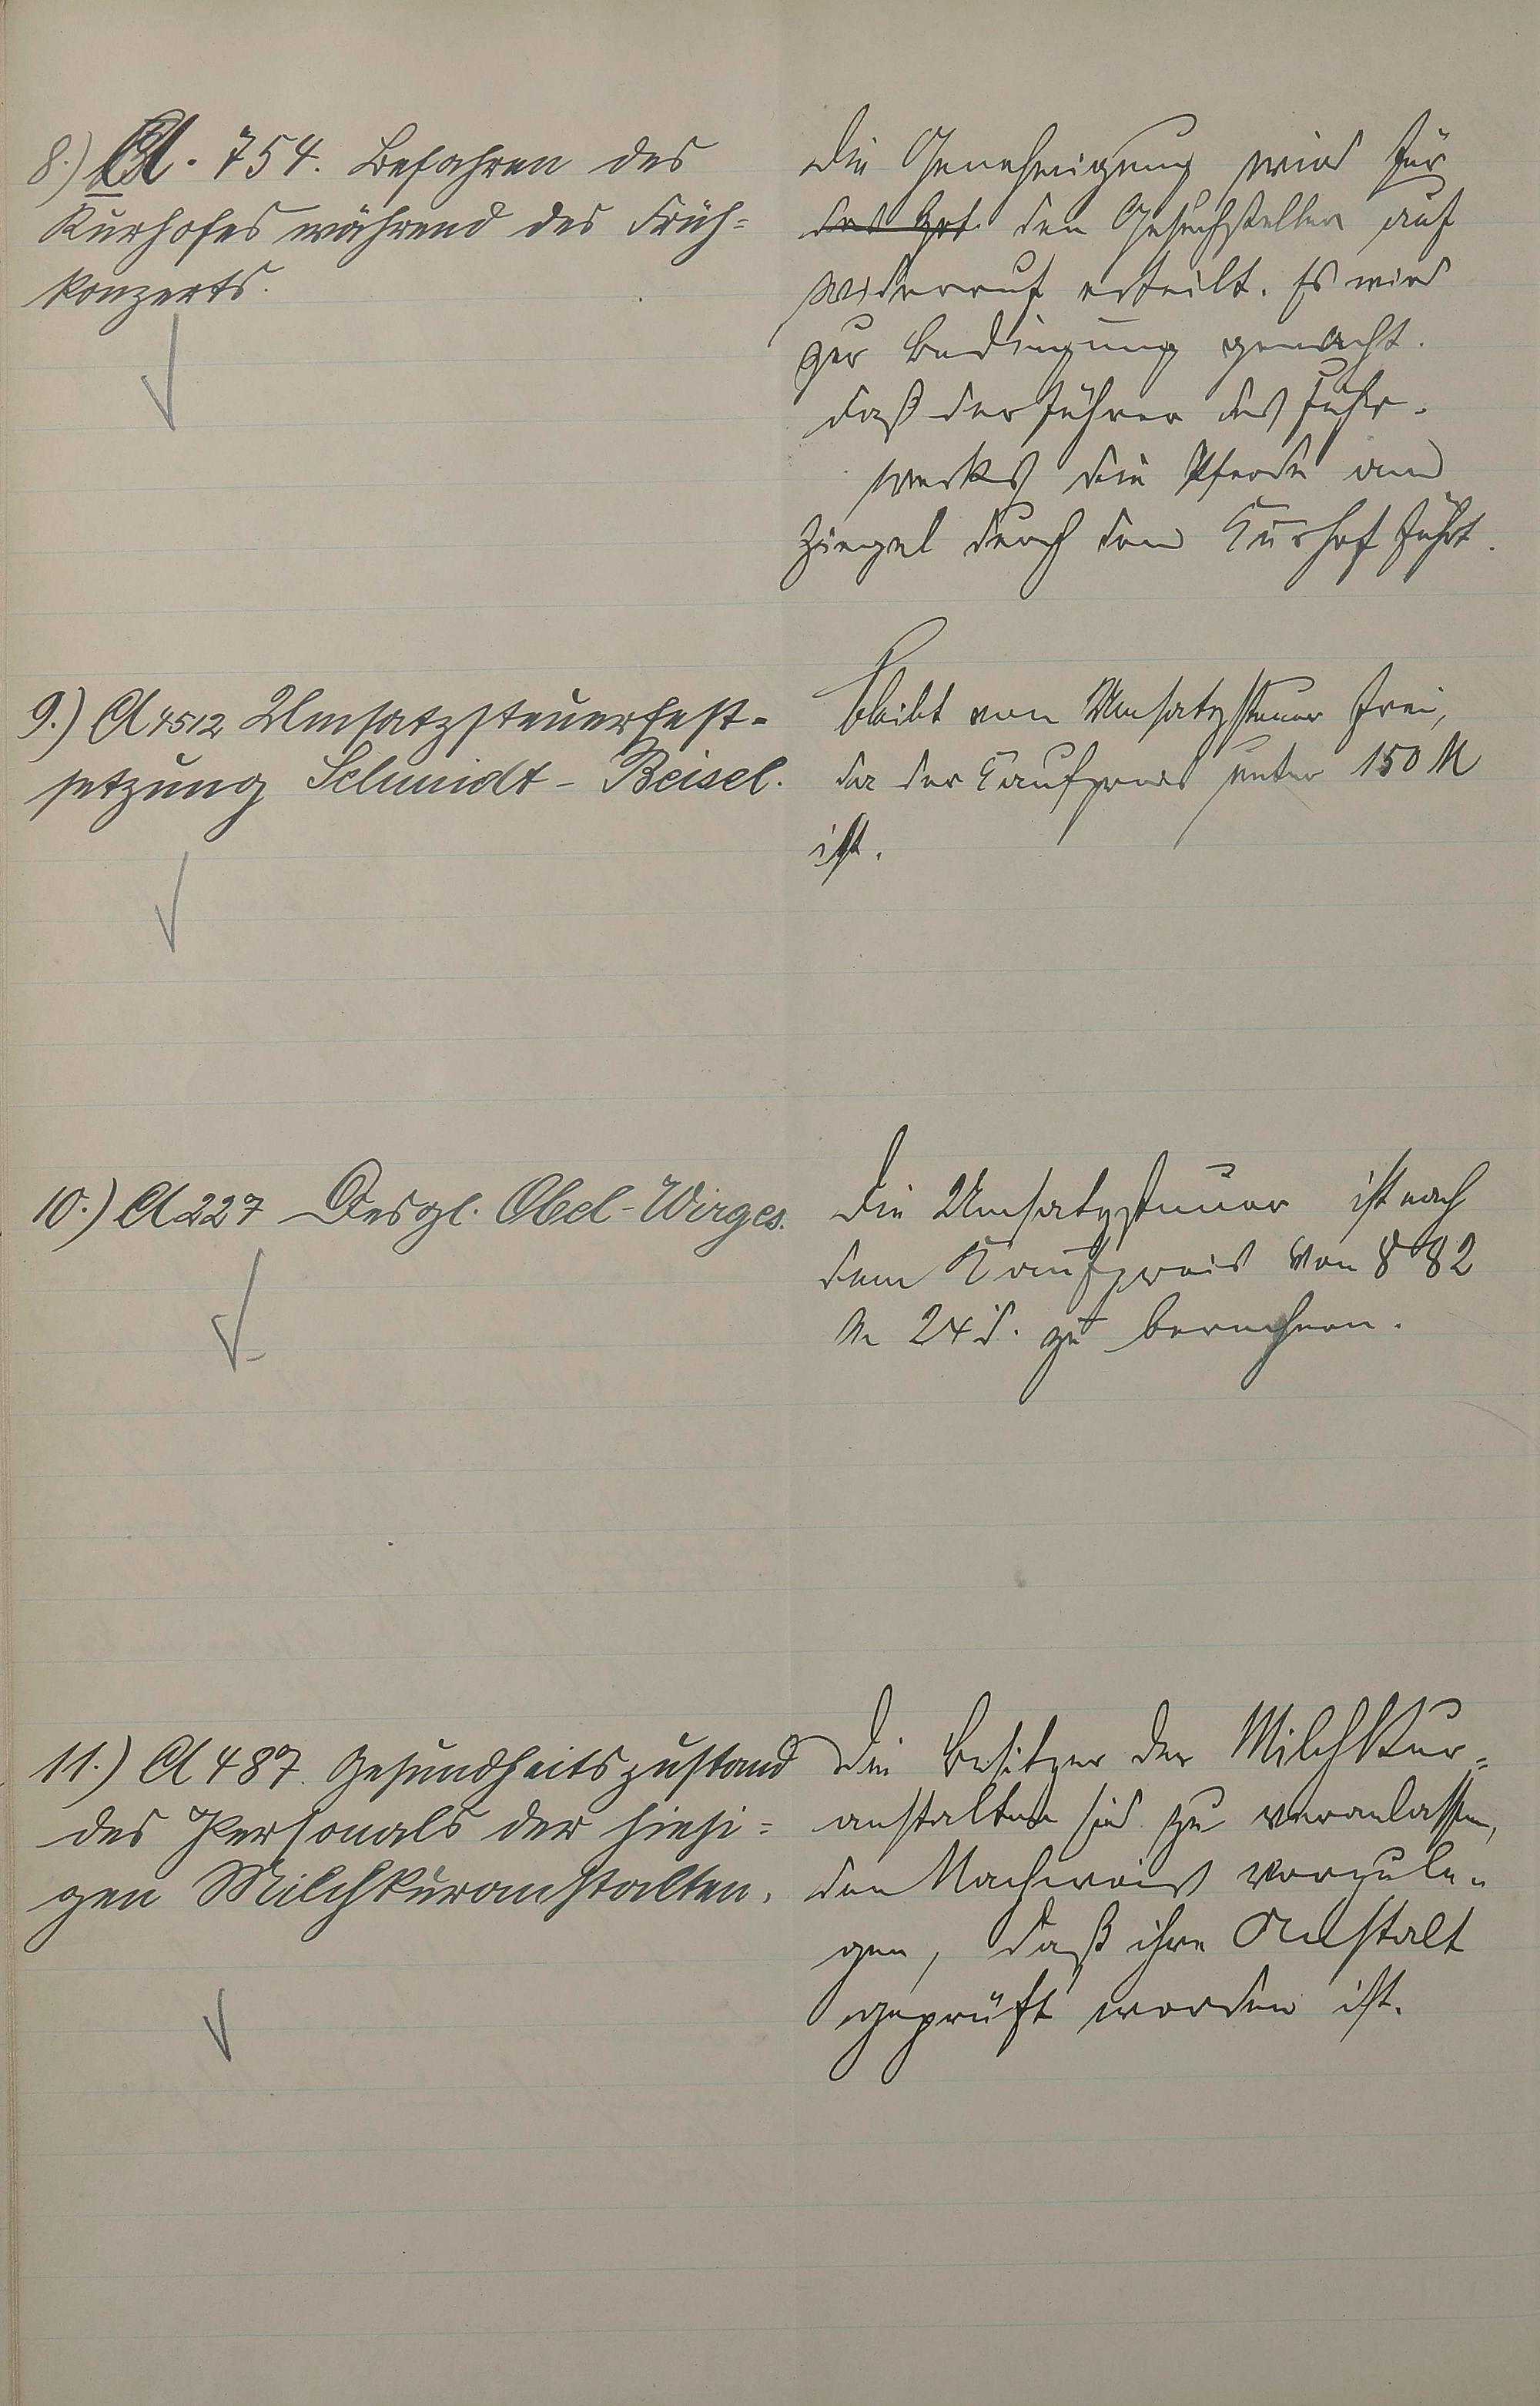 8.) A. 754. Befahren des
Kurhofes während des Früh-
konzerts.
Die Genehmigung wird für
den Gesuchsteller auf
Widerruf erteilt. Es wird
zur Bedingung gemacht.
daß der Führer des Fuhr-
werks die Pferde am
Zügel durch den Kurhof führt.
9.) A 4512 Umsatzsteuerfest-
setzung Schmidt - Beisel.
bleibt von Umsatzsteuer frei,
da der Kaufpreis unter 150 M
ist.
10.) A 227 Desgl. Obel-Wirges.
Die Umsatzsteuer ist nach
dem Kaufpreis von 882
M 24 d. zu berechnen.
11.) A 487. Gesundheitszustand
des Personals der hiesi-
gen Milchkuranstalten.
Die Besitzer der Milchkur-
anstalten sind zu veranlassen,
den Nachweis vorzule-
gen, daß ihre Anstalt
geprüft worden ist.